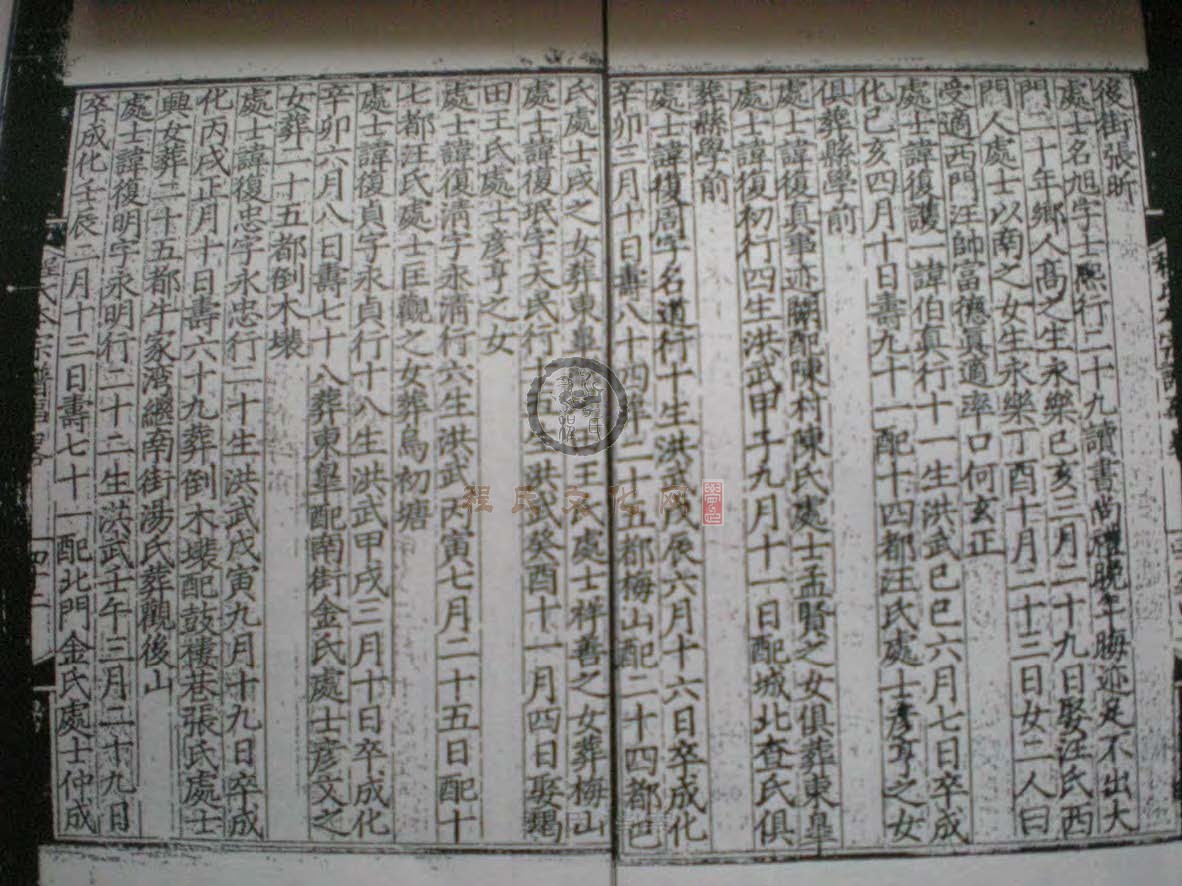 後街張昕
處士名旭字士熙行二十九讀書尚禮晚年晦迹足不出大
門二十年鄉人高之生永樂己亥二月二十九日娶汪氏西
門人處士以南之女生永樂丁酉十月二十三日女二人曰
受適西門汪帥富德真適率口何玄正
處士諱復護一諱伯真行十一生洪武己巳六月七日卒成
化己亥四月十日壽九十一配十四都汪氏處士彥亨之女
俱葬縣學前
處士諱復真事迹闕配陳村陳氏處士孟賢之女俱葬東皐
處士諱復初行四生洪武甲子九月十一日配城北查氏俱
葬縣學前
處士諱復周字名道行十生洪武戊辰六月十六日卒成化
辛卯三月十日壽八十四葬二十五都梅山配二十四都巴
氏處士茂之女葬東皐 王氏處士祥善之女葬梅山
處士諱復珉字天民行十 生洪武癸酉十一月四日娶竭
田王氏處士彥亨之女
處士諱復清字永清行六生洪武丙寅七月二十五日配十
七都汪氏處士匡觀之女葬烏初塘
處士諱復貞字永貞行十八生洪武甲戌三月十日卒成化
辛卯六月八日壽七十八葬東皐配南街金氏處士彥文之
女葬二十五都倒木㙷
處士諱復忠字永忠行二十生洪武戊寅九月十九日卒成
化丙戌正月十日壽六十九葬倒木㙷配鼓樓巷張氏處士
興女葬二十五都牛家灣繼南街湯氏葬觀後山
處士諱復明字永明行二十二生洪武壬午三月二十九日
卒成化壬辰二月十三日壽七十一配北門金氏處士仲成
程氏文化网